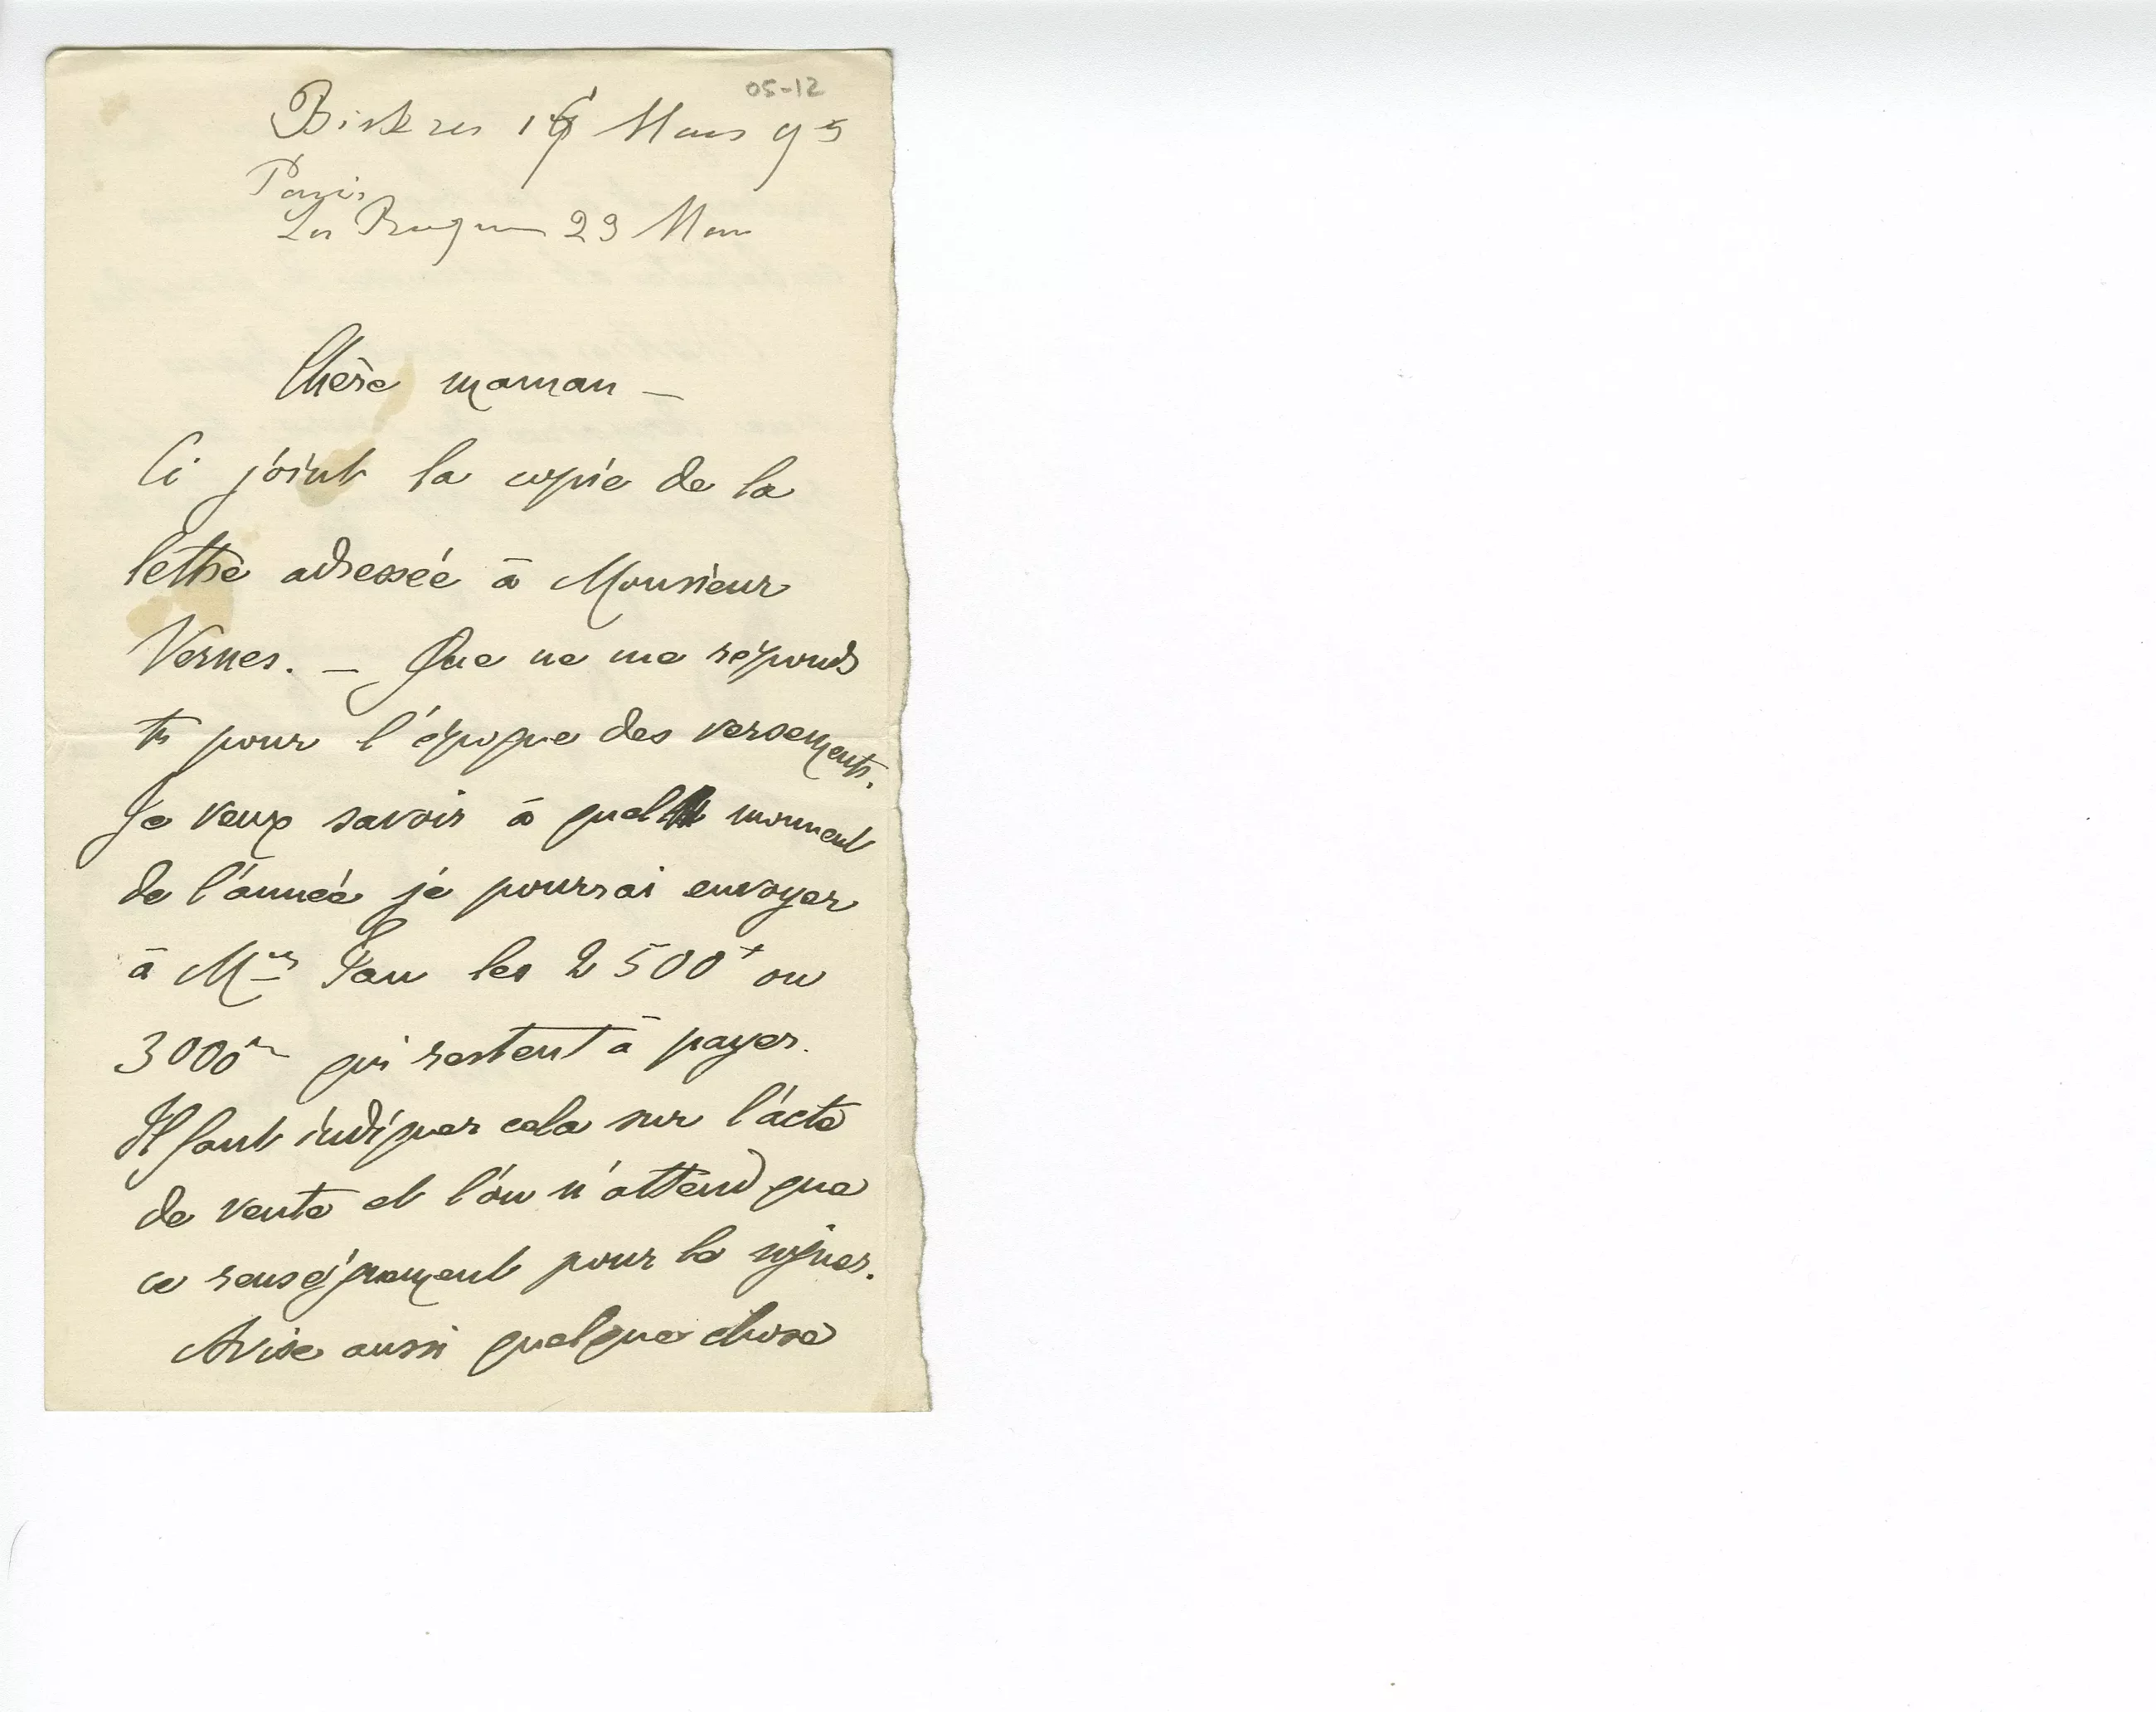 05-12
Biskra 16 Mars 95
Paris
La Roque 29 Mars
Chère maman —
Ci joint la copie de la
lettre adressée à Monsieur
Vernes. — Que ne me réponds
tu pour l'époque des versements.
Je veux savoir à quel moment
de l'année je pourrai envoyer
à Mme Pau les 2500f ou
3000fr qui restent à payer.
Il faut indiquer cela sur l'acte
de vente et l'on n'attend que
ce renseignement pour le signer.
Avise aussi quelque chose